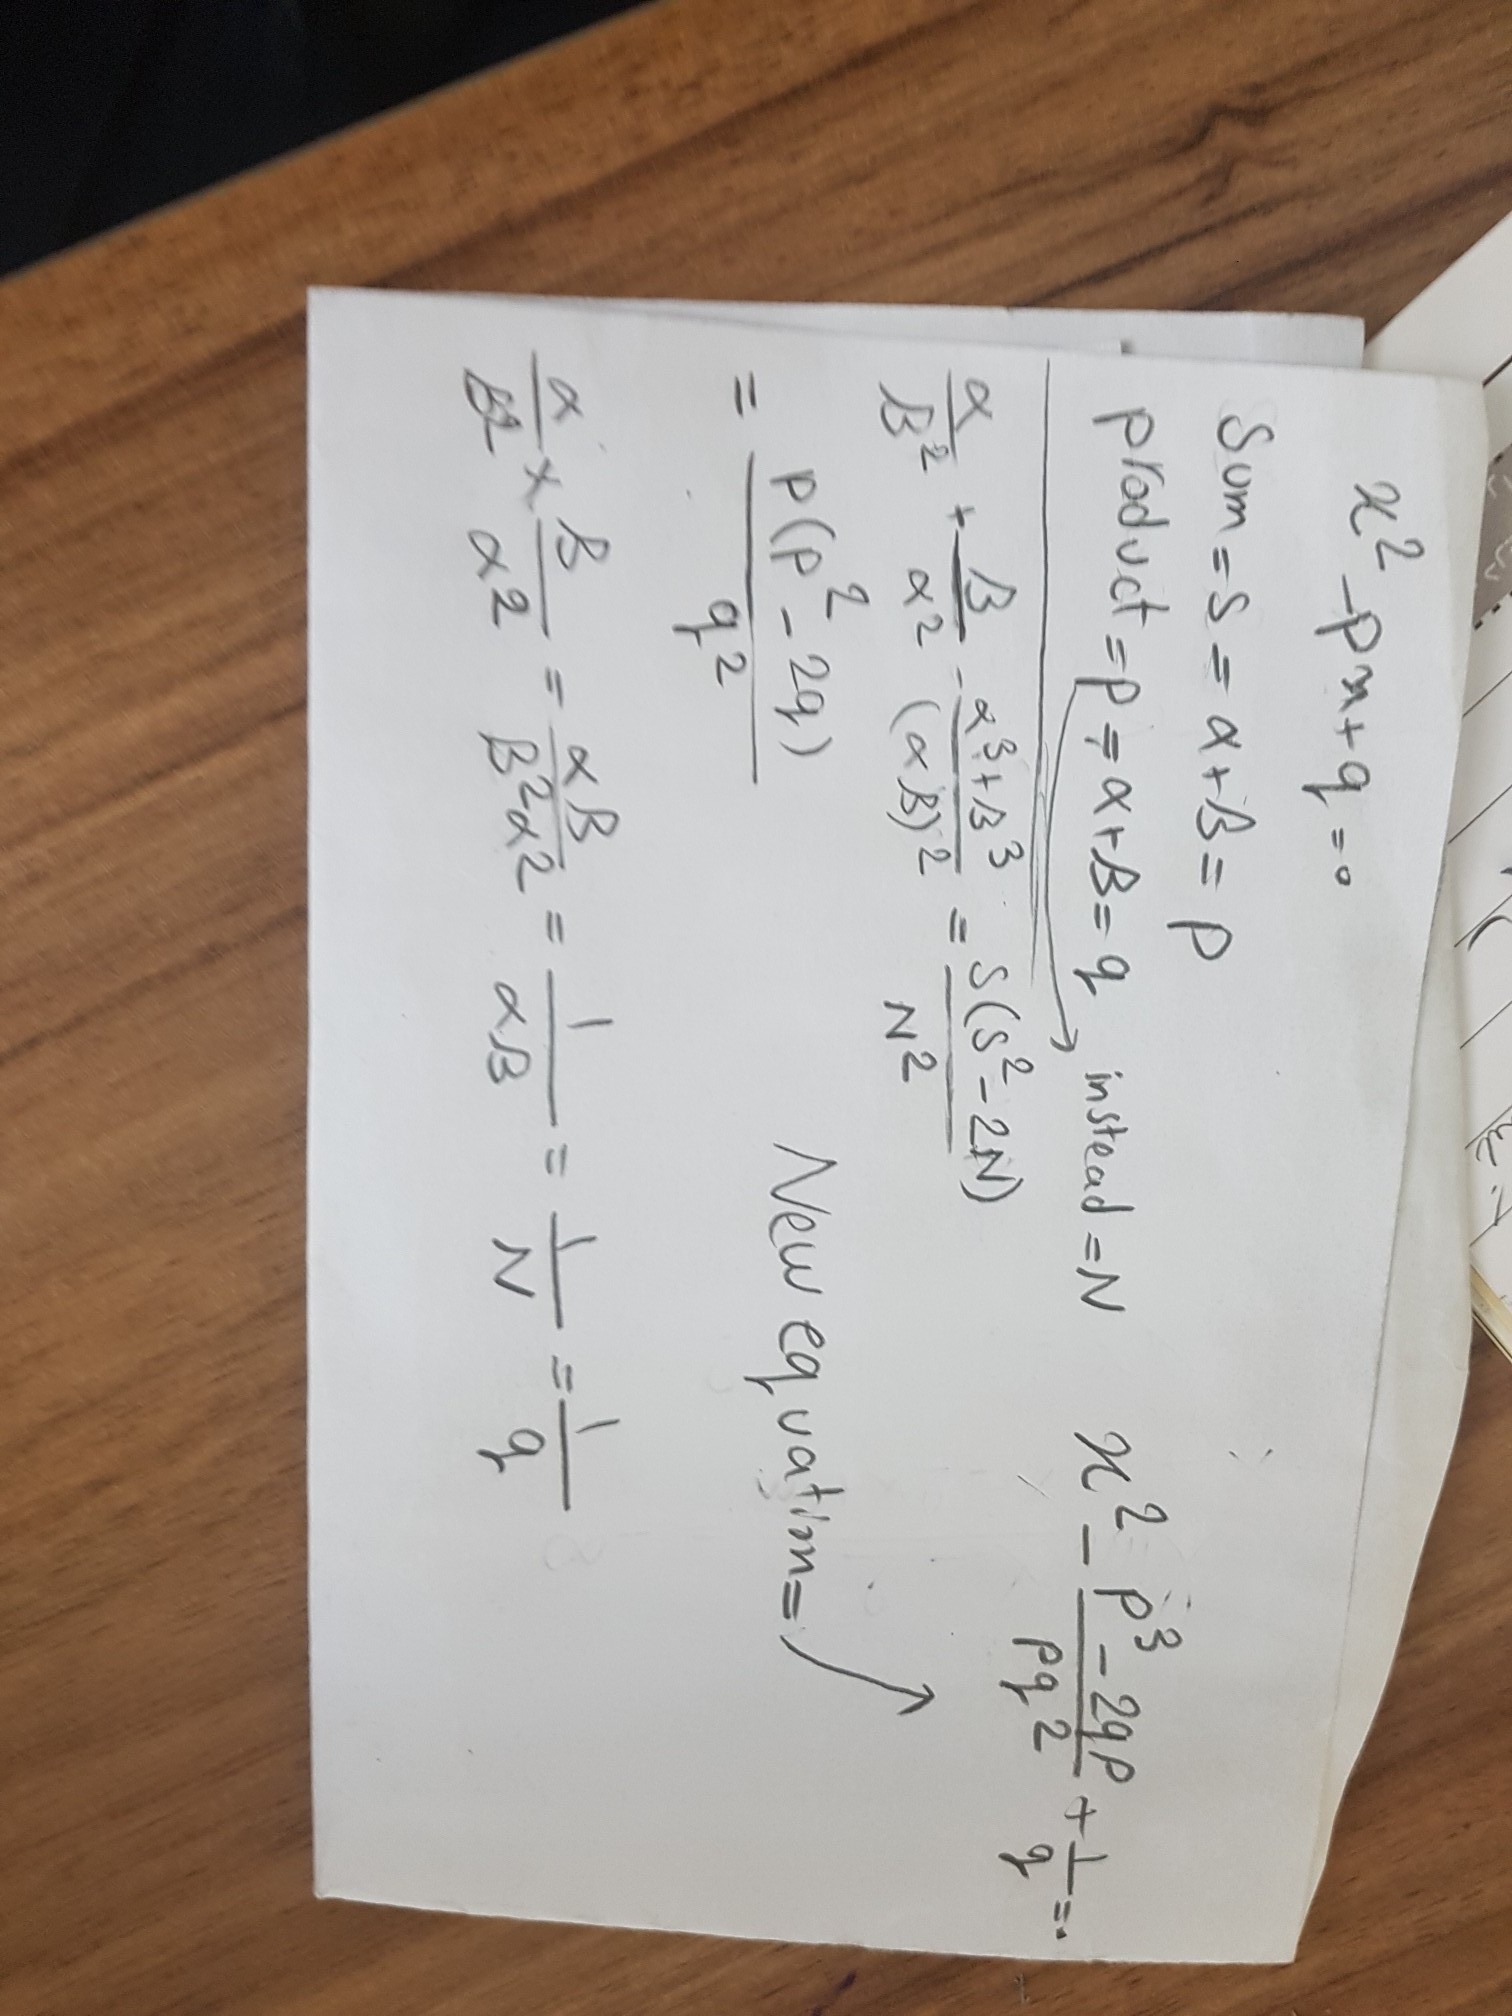 x² - px + q = 0
Sum = S = α + β = p
product = p = α + β = q instead = N
α/β² + β/α² - α³ + β³/(αβ)² = S(S² - 2N)/N²
= p(p² - 2q)/q²
α/β² × β/α² = αβ/β²α² = 1/αβ = 1/N = 1/q
New equation =
x² - p³ - 2qp/pq² + 1/q = 0